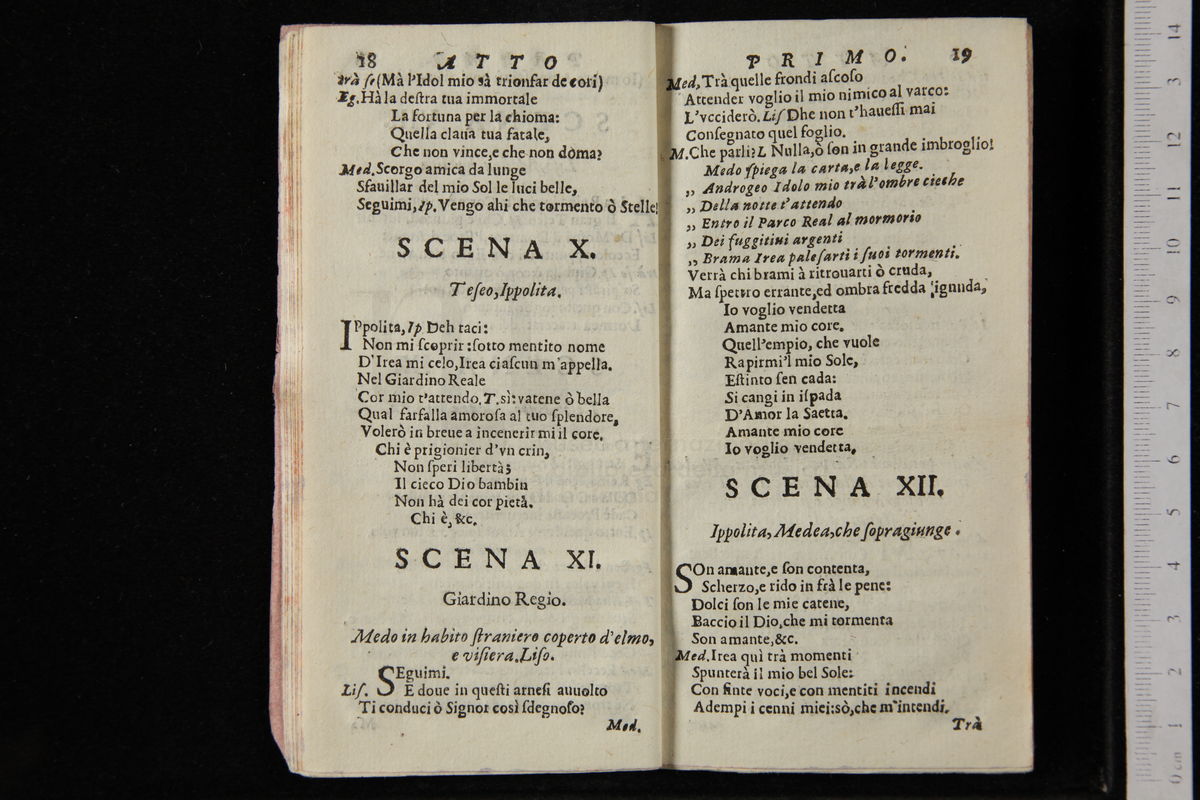 18 ATTO
trà se (Mà l'Idol mio sà trionfar de cori)
Eg. Hà la deſtra tua immortale
La fortuna per la chioma:
Quella claua tua fatale,
Che non vince, e che non doma?
Med. Scorgo amica da lunge
Sfauillar del mio Sol le luci belle,
Seguimi, Ip. Vengo ahi che tormento ò Stelle!
SCENA X.
Teſeo, Ippolita.
IPpolita, Ip Deh taci:
Non mi ſcoprir: ſotto mentito nome
D'Irea mi celo, Irea ciaſcun m'appella.
Nel Giardino Reale
Cor mio t'attendo. T. sì: vatene ò bella
Qual farfalla amoroſa al tuo ſplendore,
Volerò in breue a incenerirmi il core.
Chi è prigionier d'vn crin,
Non ſperi libertà;
Il cieco Dio bambin
Non hà dei cor pietà.
Chi è, &c.
SCENA XI.
Giardino Regio.
Medo in habito ſtraniero coperto d'elmo,
e viſiera. Liſo.
SEguimi.
Liſ. E doue in queſti arneſi auuolto
Ti conduci ò Signor così ſdegnoſo?
Med.
PRIMO. 19
Med, Trà quelle frondi aſcoſo
Attender voglio il mio nimico al varco:
L'vcciderò. Liſ Dhe non t'haueſſi mai
Conſegnato quel foglio.
M. Che parli? L Nulla, ò ſon in grande imbroglio!
Medo ſpiega la carta, e la legge.
„ Androgeo Idolo mio trà l'ombre cieche
„ Della notte t'attendo
„ Entro il Parco Real al mormorio
„ Dei fuggitiui argenti
„ Brama Irea paleſarti i ſuoi tormenti.
Verrà chi brami à ritrouarti ò cruda,
Ma ſpettro errante, ed ombra fredda ignuda,
Io voglio vendetta
Amante mio core.
Quell'empio, che vuole
Rapirmi'l mio Sole,
Eſtinto ſen cada:
Si cangi in iſpada
D'Amor la Saetta.
Amante mio core
Io voglio vendetta.
SCENA XII.
Ippolita, Medea, che ſopragiunge.
SOn amante, e ſon contenta,
Scherzo, e rido in frà le pene:
Dolci ſon le mie catene,
Baccio il Dio, che mi tormenta
Son amante, &c.
Med. Irea quì trà momenti
Spunterà il mio bel Sole:
Con finte voci, e con mentiti incendi
Adempi i cenni miei: sò, che m'intendi.
Trà
0 cm 1 2 3 4 5 6 7 8 9 10 11 12 13 14